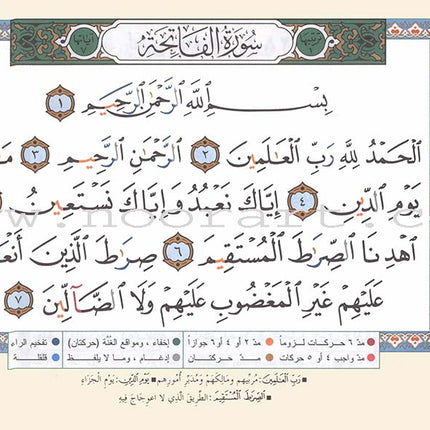 آياتها ٧ سُورَةُ الفَاتِحَة ترتيبها ١
بِسْمِ ٱللَّهِ ٱلرَّحْمَٰنِ ٱلرَّحِيمِ ١
ٱلْحَمْدُ لِلَّهِ رَبِّ ٱلْعَٰلَمِينَ ٢ ٱلرَّحْمَٰنِ ٱلرَّحِيمِ ٣ مَ
يَوْمِ ٱلدِّينِ ٤ إِيَّاكَ نَعْبُدُ وَإِيَّاكَ نَسْتَعِينُ
ٱهْدِنَا ٱلصِّرَٰطَ ٱلْمُسْتَقِيمَ ٦ صِرَٰطَ ٱلَّذِينَ أَنْعَ
عَلَيْهِمْ غَيْرِ ٱلْمَغْضُوبِ عَلَيْهِمْ وَلَا ٱلضَّآلِّينَ ٧
مدّ ٦ حركات لزوماً مدّ ٢ أو ٤ أو ٦ جوازاً إخفاء ، ومواقع الغُنَّة (حركتان) تفخيم الراء
مدّ واجب ٤ أو ٥ حركات مدّ حركتان إدغام ، وما لا يُلفظ قلقلة
رَبِّ العَالَمِينَ: مُربِّيهم ومَالِكِهِم ومُدَبِّرِ أُمُورِهِم يَوْمِ الدِّينِ: يَوْمِ الجَزَاءِ
الصِّرَاطَ المُسْتَقِيمَ: الطريقَ الذي لا اعوِجَاجَ فِيهِ
www.noorart.c